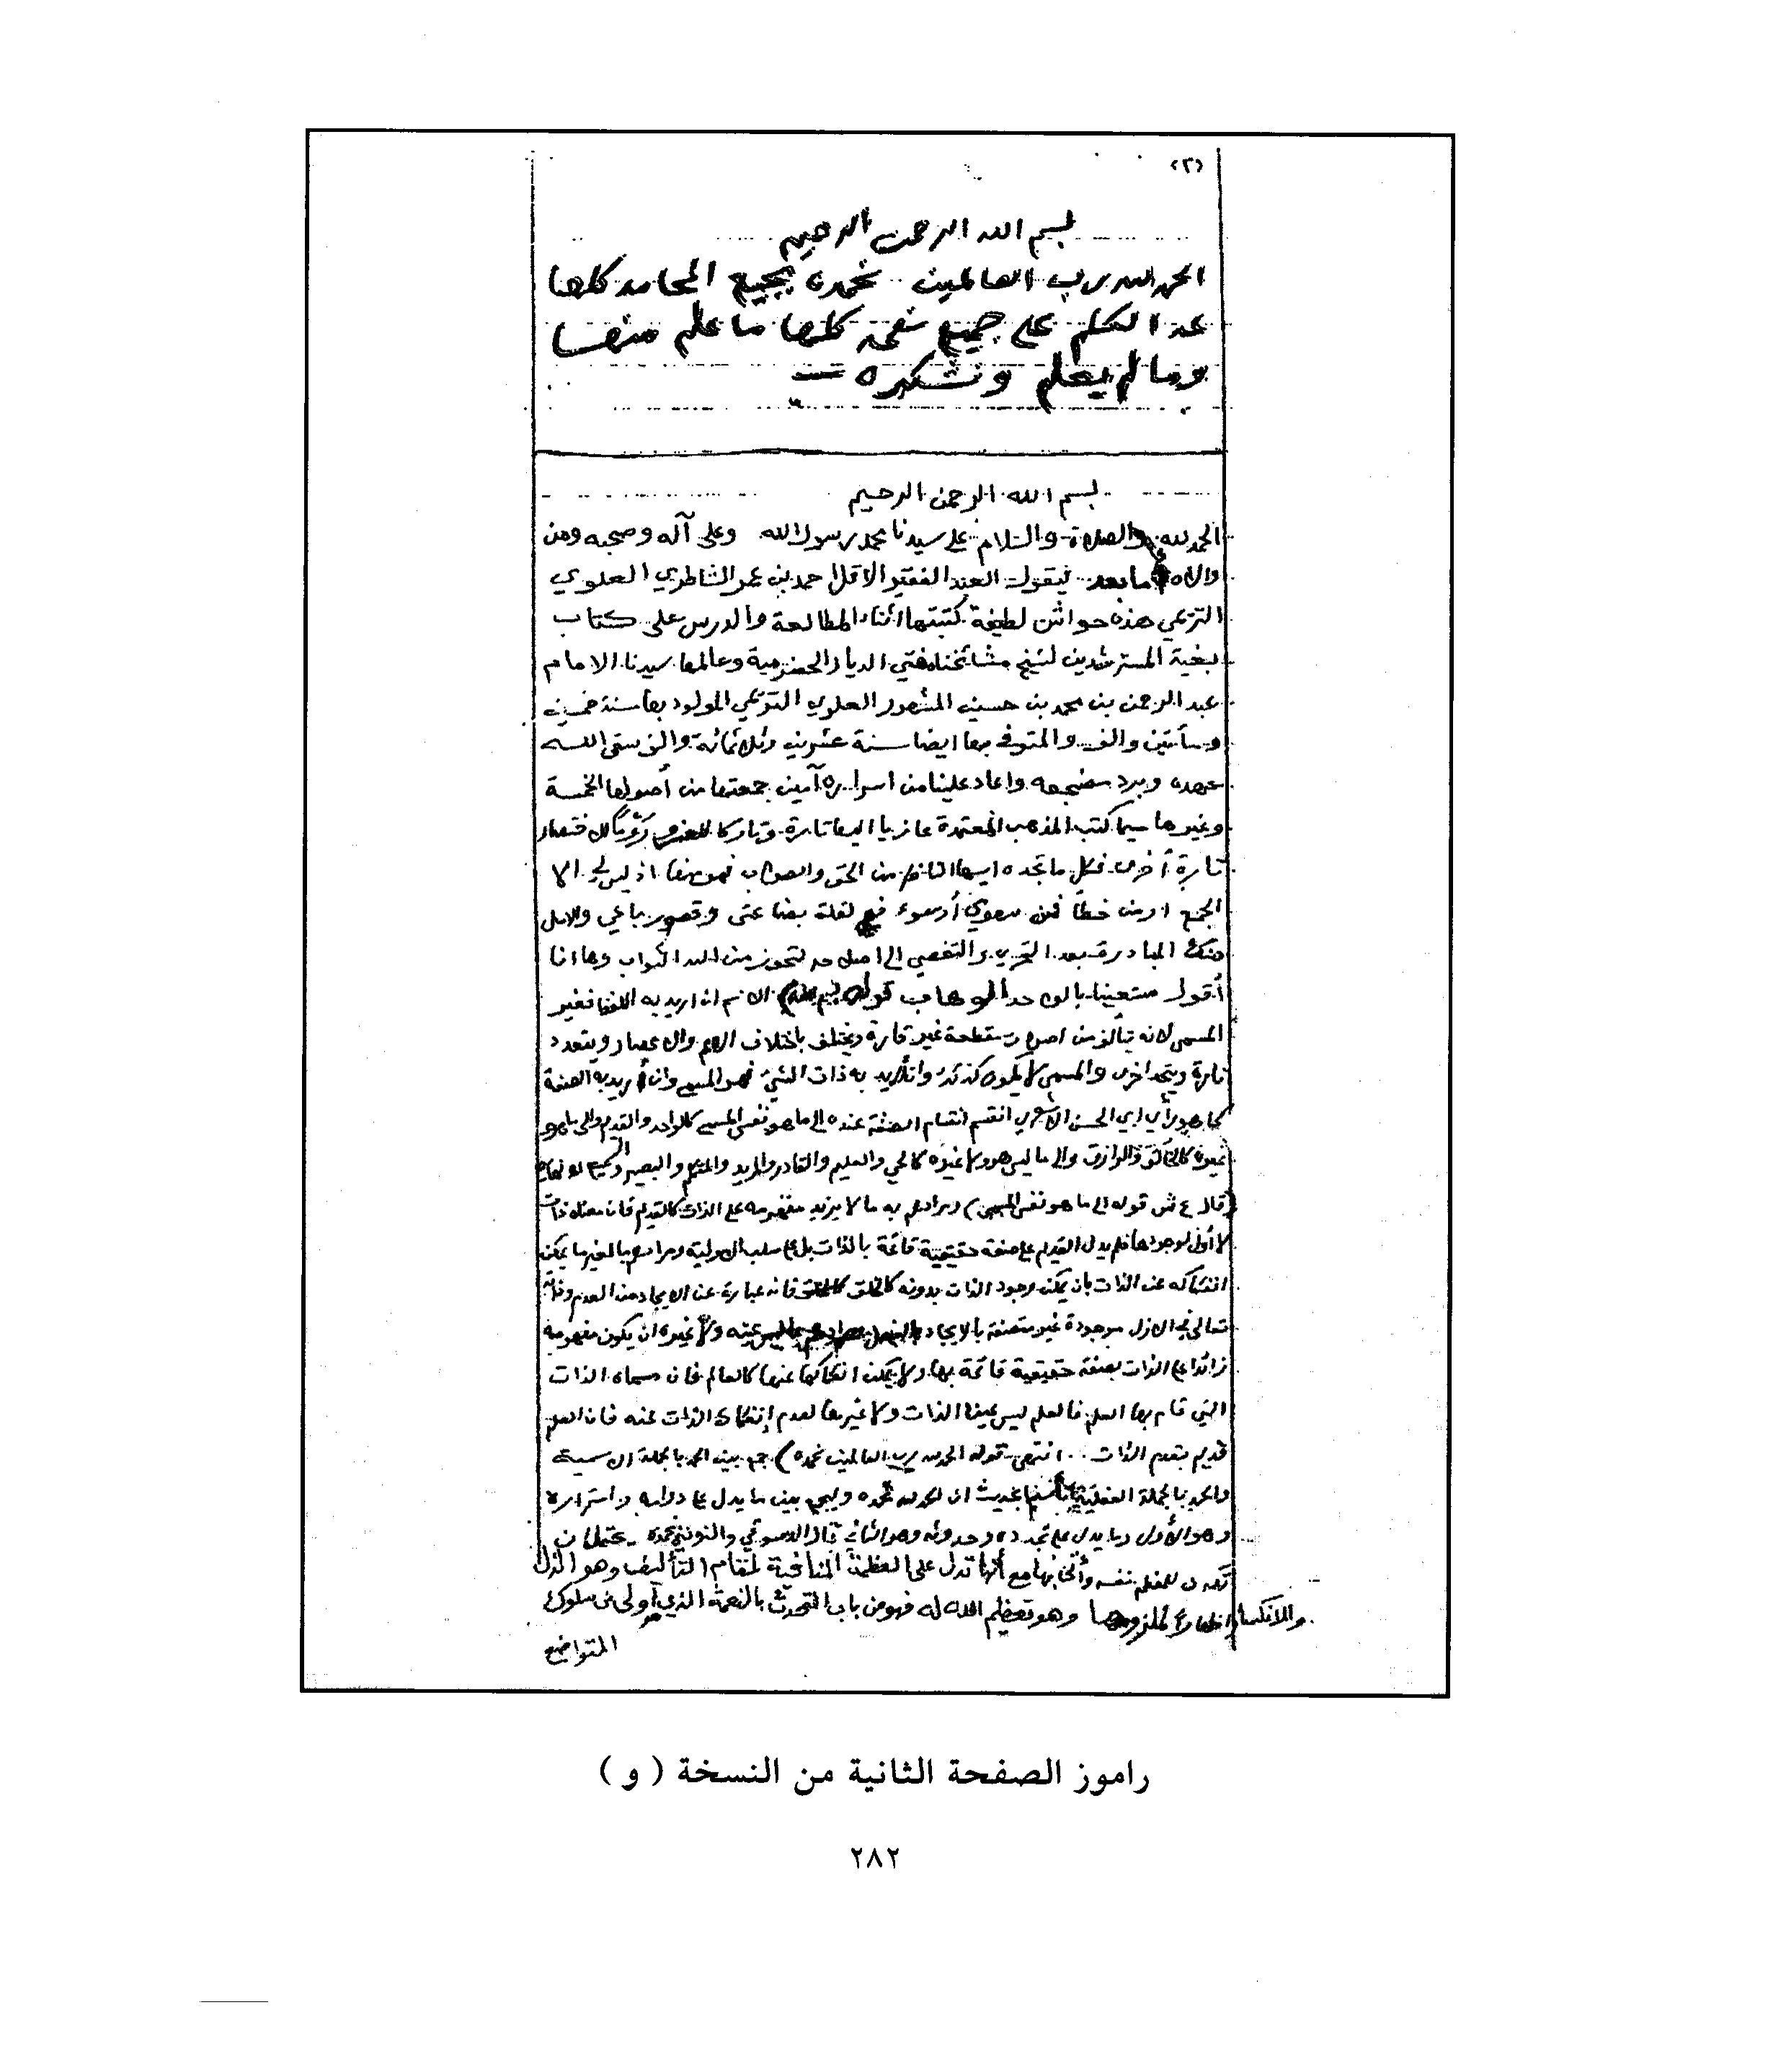 (٢)
بسم الله الرحمن الرحيم
الحمد لله رب العالمين نحمده بجميع المحامد كلها
عد الكلم على جميع نعمه كلها ما علم منها
وما لم يعلم ونشكره
بسم الله الرحمن الرحيم
الحمد لله والصلاة والسلام على سيدنا محمد رسول الله وعلى آله وصحبه ومن
والاه اما بعد فيقول العبد الفقير الاقل احمد بن عمر الشاطري العلوي
التريمي هذه حواش لطيفة كتبتها اثناء المطالعة والدرس على كتاب
بغية المسترشدين لشيخ مشائخنا مفتي الديار الحضرمية وعالمها سيدنا الامام
عبد الرحمن بن محمد بن حسين المشهور العلوي التريمي المولود بها سنة خمسين
ومأتين والف والمتوفى بها ايضا سنة عشرين وثلاثمائة والف سقى الله
عهده وبرد مضجعه واعاد علينا من اسراره آمين جمعتها من أصولها الخمسة
وغيرها سيما كتب المذهب المعتمدة عازيا اليها تارة وتاركا للعزو روما للاختصار
تارة أخرى فكل ما تجده ايها الناظر من الحق والصواب فهو منها اذ ليس لي الا
الجمع او من خطأ فمن سهوي أو سوء فهمي لقلة بضاعتي وقصور باعي والامل
منك المبادرة بعد التحري والتفحص الى اصلاحه لتحوز من الله الثواب وها انا
أقول مستعينا بالواحد الوهاب قوله بسم الله) الاسم ان اريد به اللفظ فغير
المسمى لانه يتألف من اصوات مقطعة غير قارة ويختلف باختلاف الامم والاعصار ويتعدد
تارة ويتحد اخرى والمسمى لا يكون كذلك وان أريد به ذات الشيء فهو المسمى وان أريد به الصفة
كما هو رأي ابي الحسن الاشعري انقسم انقسام الصفة عنده الى ما هو نفس المسمى كالواحد والقديم والى ما هو
غيره كالخالق والرازق والى ما ليس هو ولا غيره كالحي والعليم والقادر والمريد والمتكلم والبصير والسميع
(قال ع ش قوله الى ما هو نفس المسمى) ومرادهم به ما لا يزيد مفهومه على الذات كالقديم فان معناه ذات
لا أول لوجودها فلم يدل القديم على صفة حقيقية قائمة بالذات بل على سلب الاولية ومرادهم بالغير ما يمكن
انفكاكه عن الذات بان يمكن وجود الذات بدونه كالخالق فانه عبارة عن الايجاد من العدم وذاته
تعالى في الازل موجودة غير متصفة بالايجاد بالفعل ومرادهم بما ليس عينه ولا غيره ان يكون مفهومه
زائدا على الذات بصفة حقيقية قائمة بها ولا يمكن انفكاكها عنها كالعالم فان مسماه الذات
التي قام بها العلم فالعلم ليس عين الذات ولا غيرها لعدم إنفكاك الذات عنه فان العلم
قديم بقدم الذات .. انتهى قوله الحمد لله رب العالمين نحمده) جمع بين الحمد بالجملة الاسمية
والحمد بالجملة الفعلية تأسيا بحديث ان الحمد لله نحمده وليجمع بين ما يدل على دوامه واستمراره
وهو الأول وما يدل على تجدده وحدوثه وهو الثاني قال الدسوقي والنون في نحمده يحتمل ان
تكون للمعظم نفسه وأتى بها مع أنها تدل على العظمة المنافية لمقام التأليف وهو الذل
والانكسار اظهارا لملزومها وهو تعظيم الله له فهو من باب التحدث بالنعمة الذي هو أولى من سلوك
المتواضع
راموز الصفحة الثانية من النسخة ( و )
٢٨٢